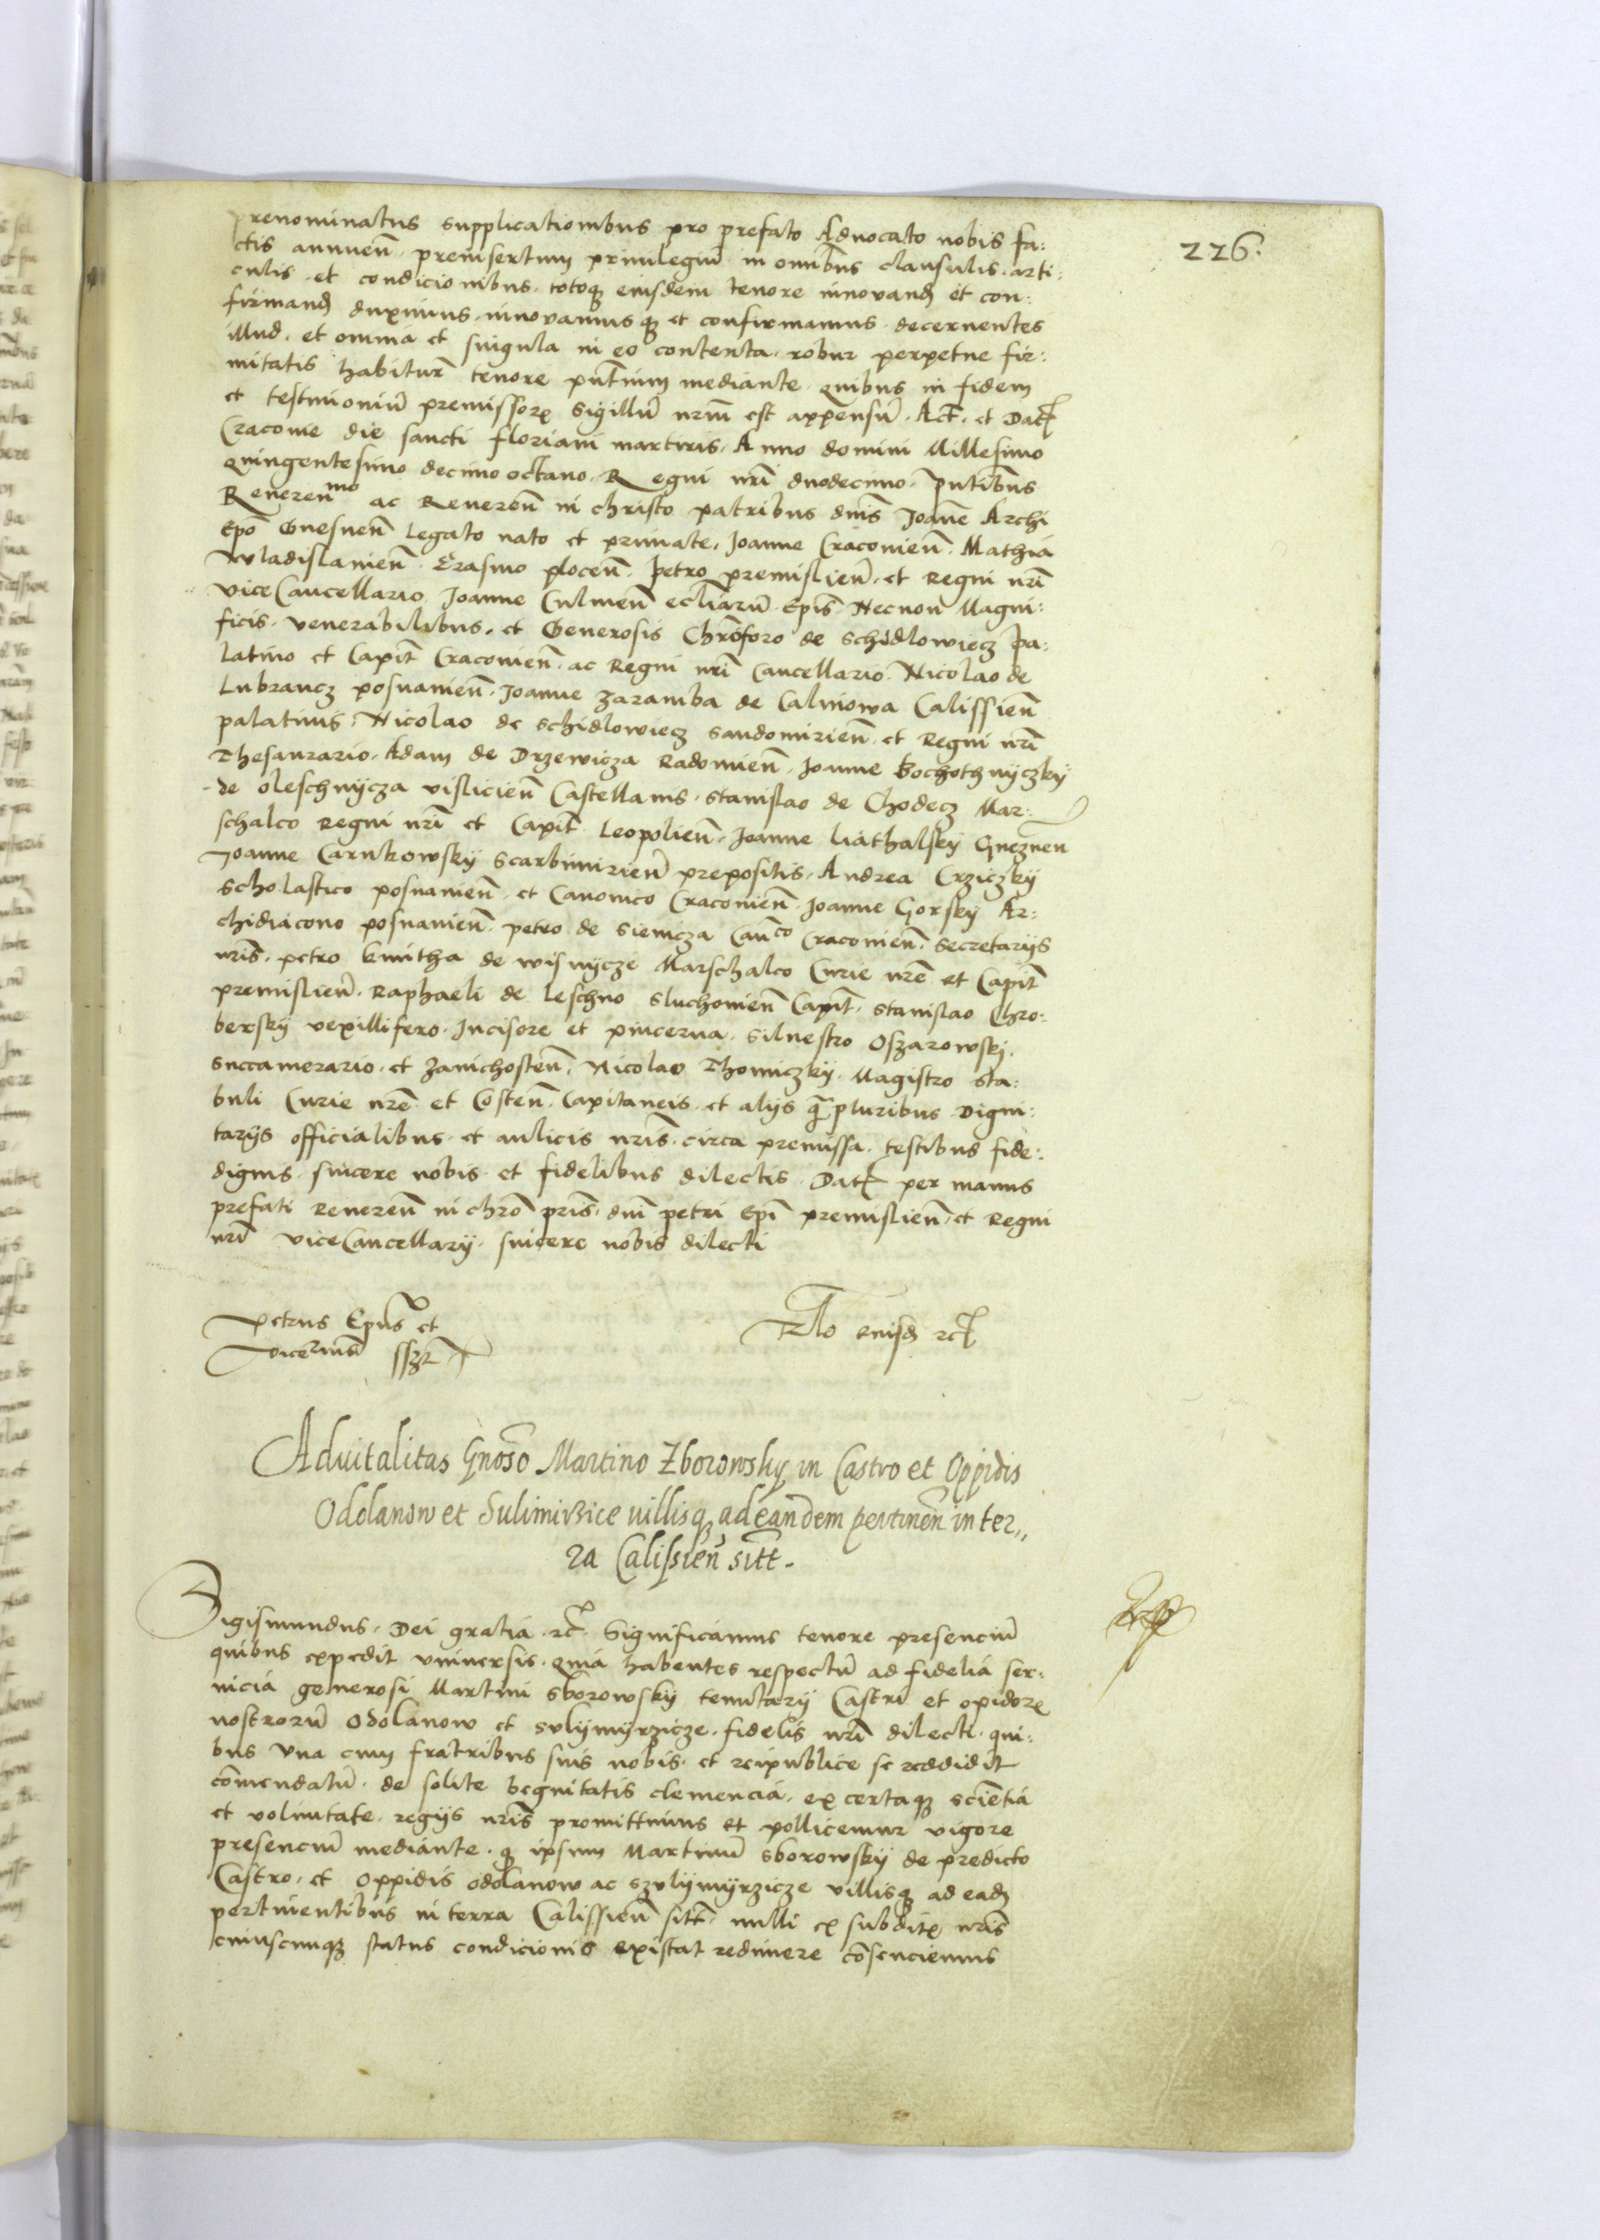 226.
prenominatus supplicationibus pro prefato Advocato nobis fa:
ctis annuen̄ . preinsertum priuilegiū in omībus clausulis . arti:
culis . et condicionibus . totoq̨ eiusdem tenore innovand̄ et con:
firmand̄ duximus . innovamus q̨ et confirmamus . decernentes
illud . et omnia et singula in eo contenta . robur perpetue fir:
mitatis habitur̄ tenore pn̄tium mediante . quibus in fidem
et testimoniū premissorꝝ sigillū nrm̄ est appensū . Act̄ . et Datꝭ
Cracouie die sancti floriani martiris . Anno domini Millesimo
quingentesimo decimo octauo . Regni nrī duodecimo . pn̄tibus
Reueren̄mo ac Reueren̄ in christo patribus dn̄is Joan̄e Archi
Epō Gnesnen̄ legato nato et primate . Joanne Cracouien̄ . Mathia
Wladislauien̄ . Erasmo plocen̄ . petro premislien̄ . et Regni nrī
vice Cancellario . Joanne Culmen̄ ecl̄iarū Ep̄is . Necnon Magni:
ficis . venerabilibus . et Generosis Chrōforo de schidlowiecz pa:
latino et Capit̄ Cracouien̄ . ac Regni nrī Cancellario . Nicolao de
Lubrancz posnanien̄ . Joanne Zaramba de Calinowa Calissien̄
palatinis . Nicolao de schidlowiecz sandomirien̄ . et Regni nrī
Thesaurario . Adam de Drzewicza Radomien̄ . Joanne Bochothnyczky
de oleschnycza vislicien̄ Castellanis . stanislao de Chodecz Mar:
schalco Regni nrī et Capit̄ Leopolien̄ . Joanne liathalsky Gneznen
Joanne Carnkowsky scarbimirien̄ prepositis . Andrea Crziczky
scholastico posnanien̄ . et Canonico Cracouien̄ . Joanne Gorsky Ar:
chidiacono posnanien̄ . petro de siemcza Can̄co Cracouien̄ . secretarijs
nrīs . petro kmitha de wisnycze Marschalco Curie nrē et Capit̄
premislien̄ . Raphaeli de leschno sluchouien̄ Capit̄ . stanislao Chro:
bersky vexillifero . Incisore et pincerna . siluestro Oszarowskj .
succamerario . et zawichosten̄ . Nicolao Thomiczky . Magistro sta:
buli Curie nrē . et Costen̄ . Capitaneis . et alijs q̄pluribus Digni:
tarijs officialibus . et aulicis nrīs . circa premissa . testibus fide:
dignis . sincere nobis . et fidelibus dilectis . Datꝭ per manus
prefati Reueren̄ in chrō prīs . dnī petri Epī premislien̄ . et Regni
nrī vice Cancellarij . sincere nobis dilecti
Petrus Epūs et
vice sszt
Rlo eiusd̄ rcꝭ
Aduitalitas Gnōso Martino Zborowsky in Castro et Oppidis
Odolanow et Sulimirzice villisq̨ ad eandem pertinen̄ in ter„
ra Calissien̄ sitt̄ .
Sigismundus . Dei gratia . rc̄ . Significamus tenore presenciū
quibus expedit vniuersis . quia habentes respectū ad fidelia ser:
uicia generosi Martini sborowsky tenutarij Castri et opidorꝝ
nostrorū Odolanow et sulymyrzicze . fidelis nrī dilecti . qui:
bus vna cum fratribus suis nobis . et reipublice se reddidit
com̄endatū . de solite begnitatis clemencia . ex certaq̨ sciētia
et volūtate . regijs nrīs promittimus et pollicemur vigore
presenciū mediante . q̨ ipsum Martinū sborowsky de predicto
Castro . et Oppidis odolanow ac szulymyrzicze villisq̨ ad ead̄
pertinentibus in terra Calissien̄ sitt̄ . nulli ex subditꝭ nrīs
cuiuscunq̨ status condicionis existat redimere cōsenciemus